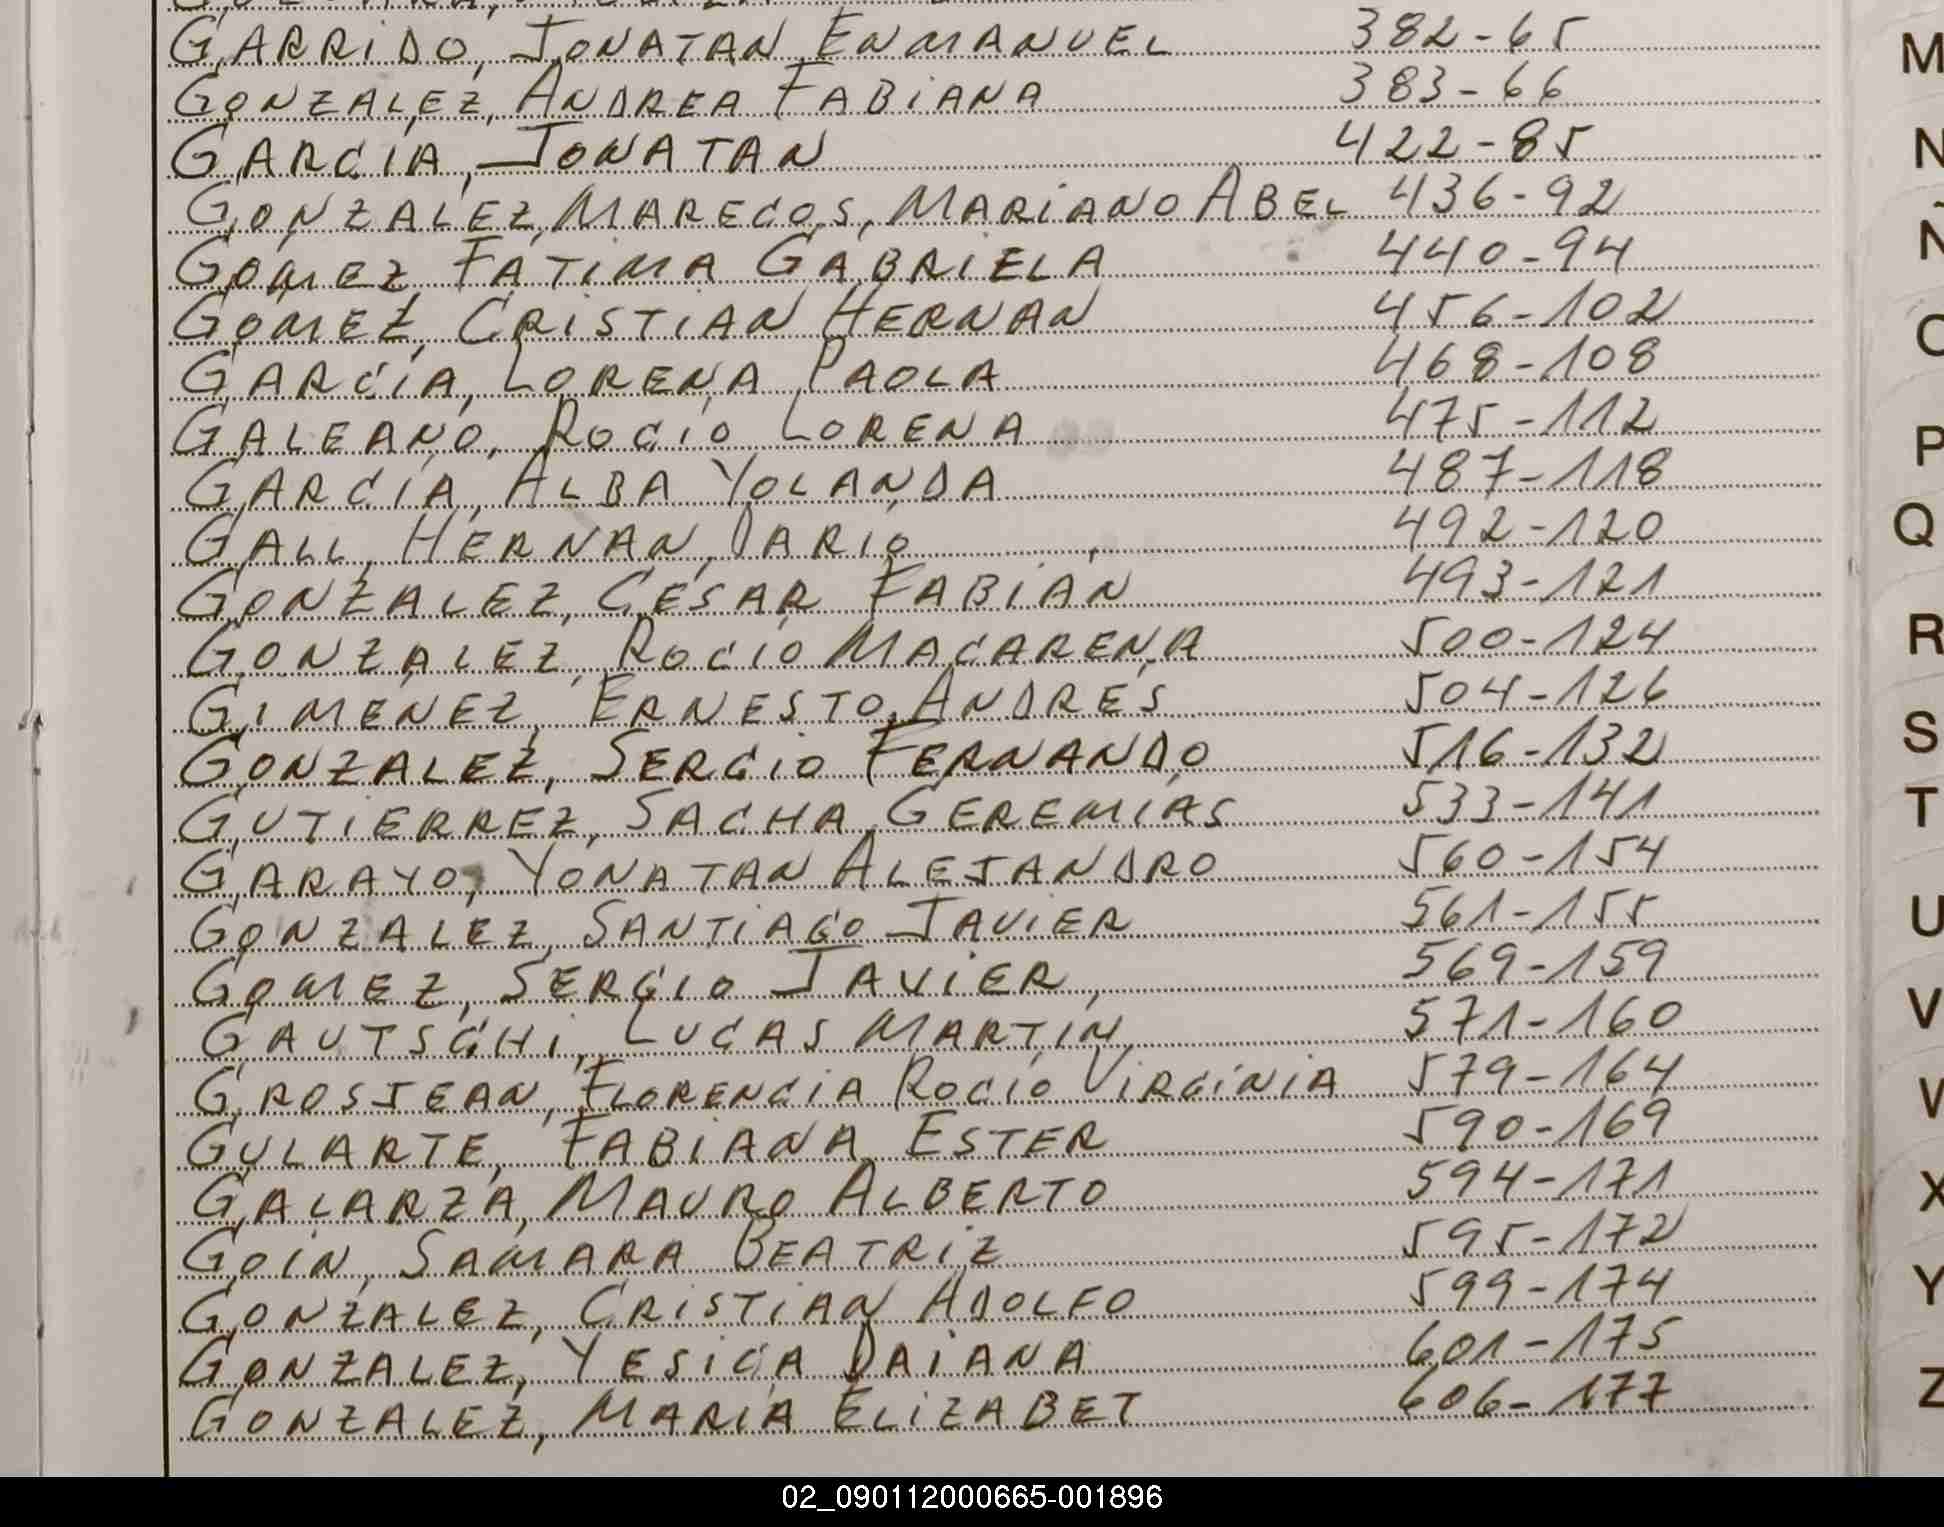 GARRIDO, JONATAN ENMANUEL 382-65
GONZALEZ, ANDREA FABIANA 383-66
GARCÍA, JONATAN 422-85
GONZALEZ, MARECOS, MARIANO ABEL 436-92
GOMEZ, FATIMA GABRIELA 440-94
GOMEZ, CRISTIAN HERNAN 456-102
GARCÍA, LORENA PAOLA 468-108
GALEANO, ROCIO LORENA 475-112
GARCÍA, ALBA YOLANDA 487-118
GALL, HERNAN DARIO 492-120
GONZALEZ, CESAR FABIÁN 493-121
GONZALEZ, ROCIO MACARENA 500-124
GIMENEZ, ERNESTO ANDRES 504-126
GONZALEZ, SERGIO FERNANDO 516-132
GUTIERREZ, SACHA GEREMIAS 533-141
GARAYO, YONATAN ALEJANDRO 560-154
GONZALEZ, SANTIAGO JAVIER 561-155
GOMEZ, SERGIO JAVIER, 569-159
GAUTSCHI, LUCAS MARTIN 571-160
GROSJEAN, FLORENCIA ROCIO VIRGINIA 579-164
GULARTE, FABIANA ESTER 590-169
GALARZA, MAURO ALBERTO 594-171
GOIN, SAMARA BEATRIZ 595-172
GONZALEZ, CRISTIAN ADOLFO 599-174
GONZALEZ, YESICA DAIANA 601-175
GONZALEZ, MARÍA ELIZABET 606-177
M
N
Ñ
O
P
Q
R
S
T
U
V
W
X
Y
Z
02_090112000665-001896